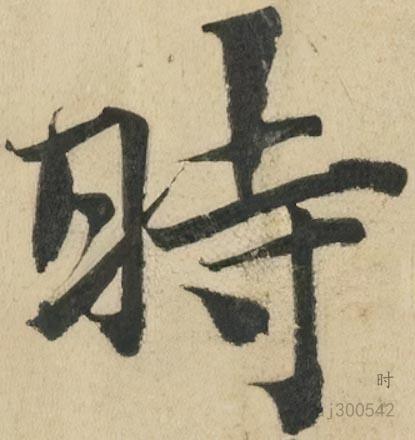 時
时
j300542